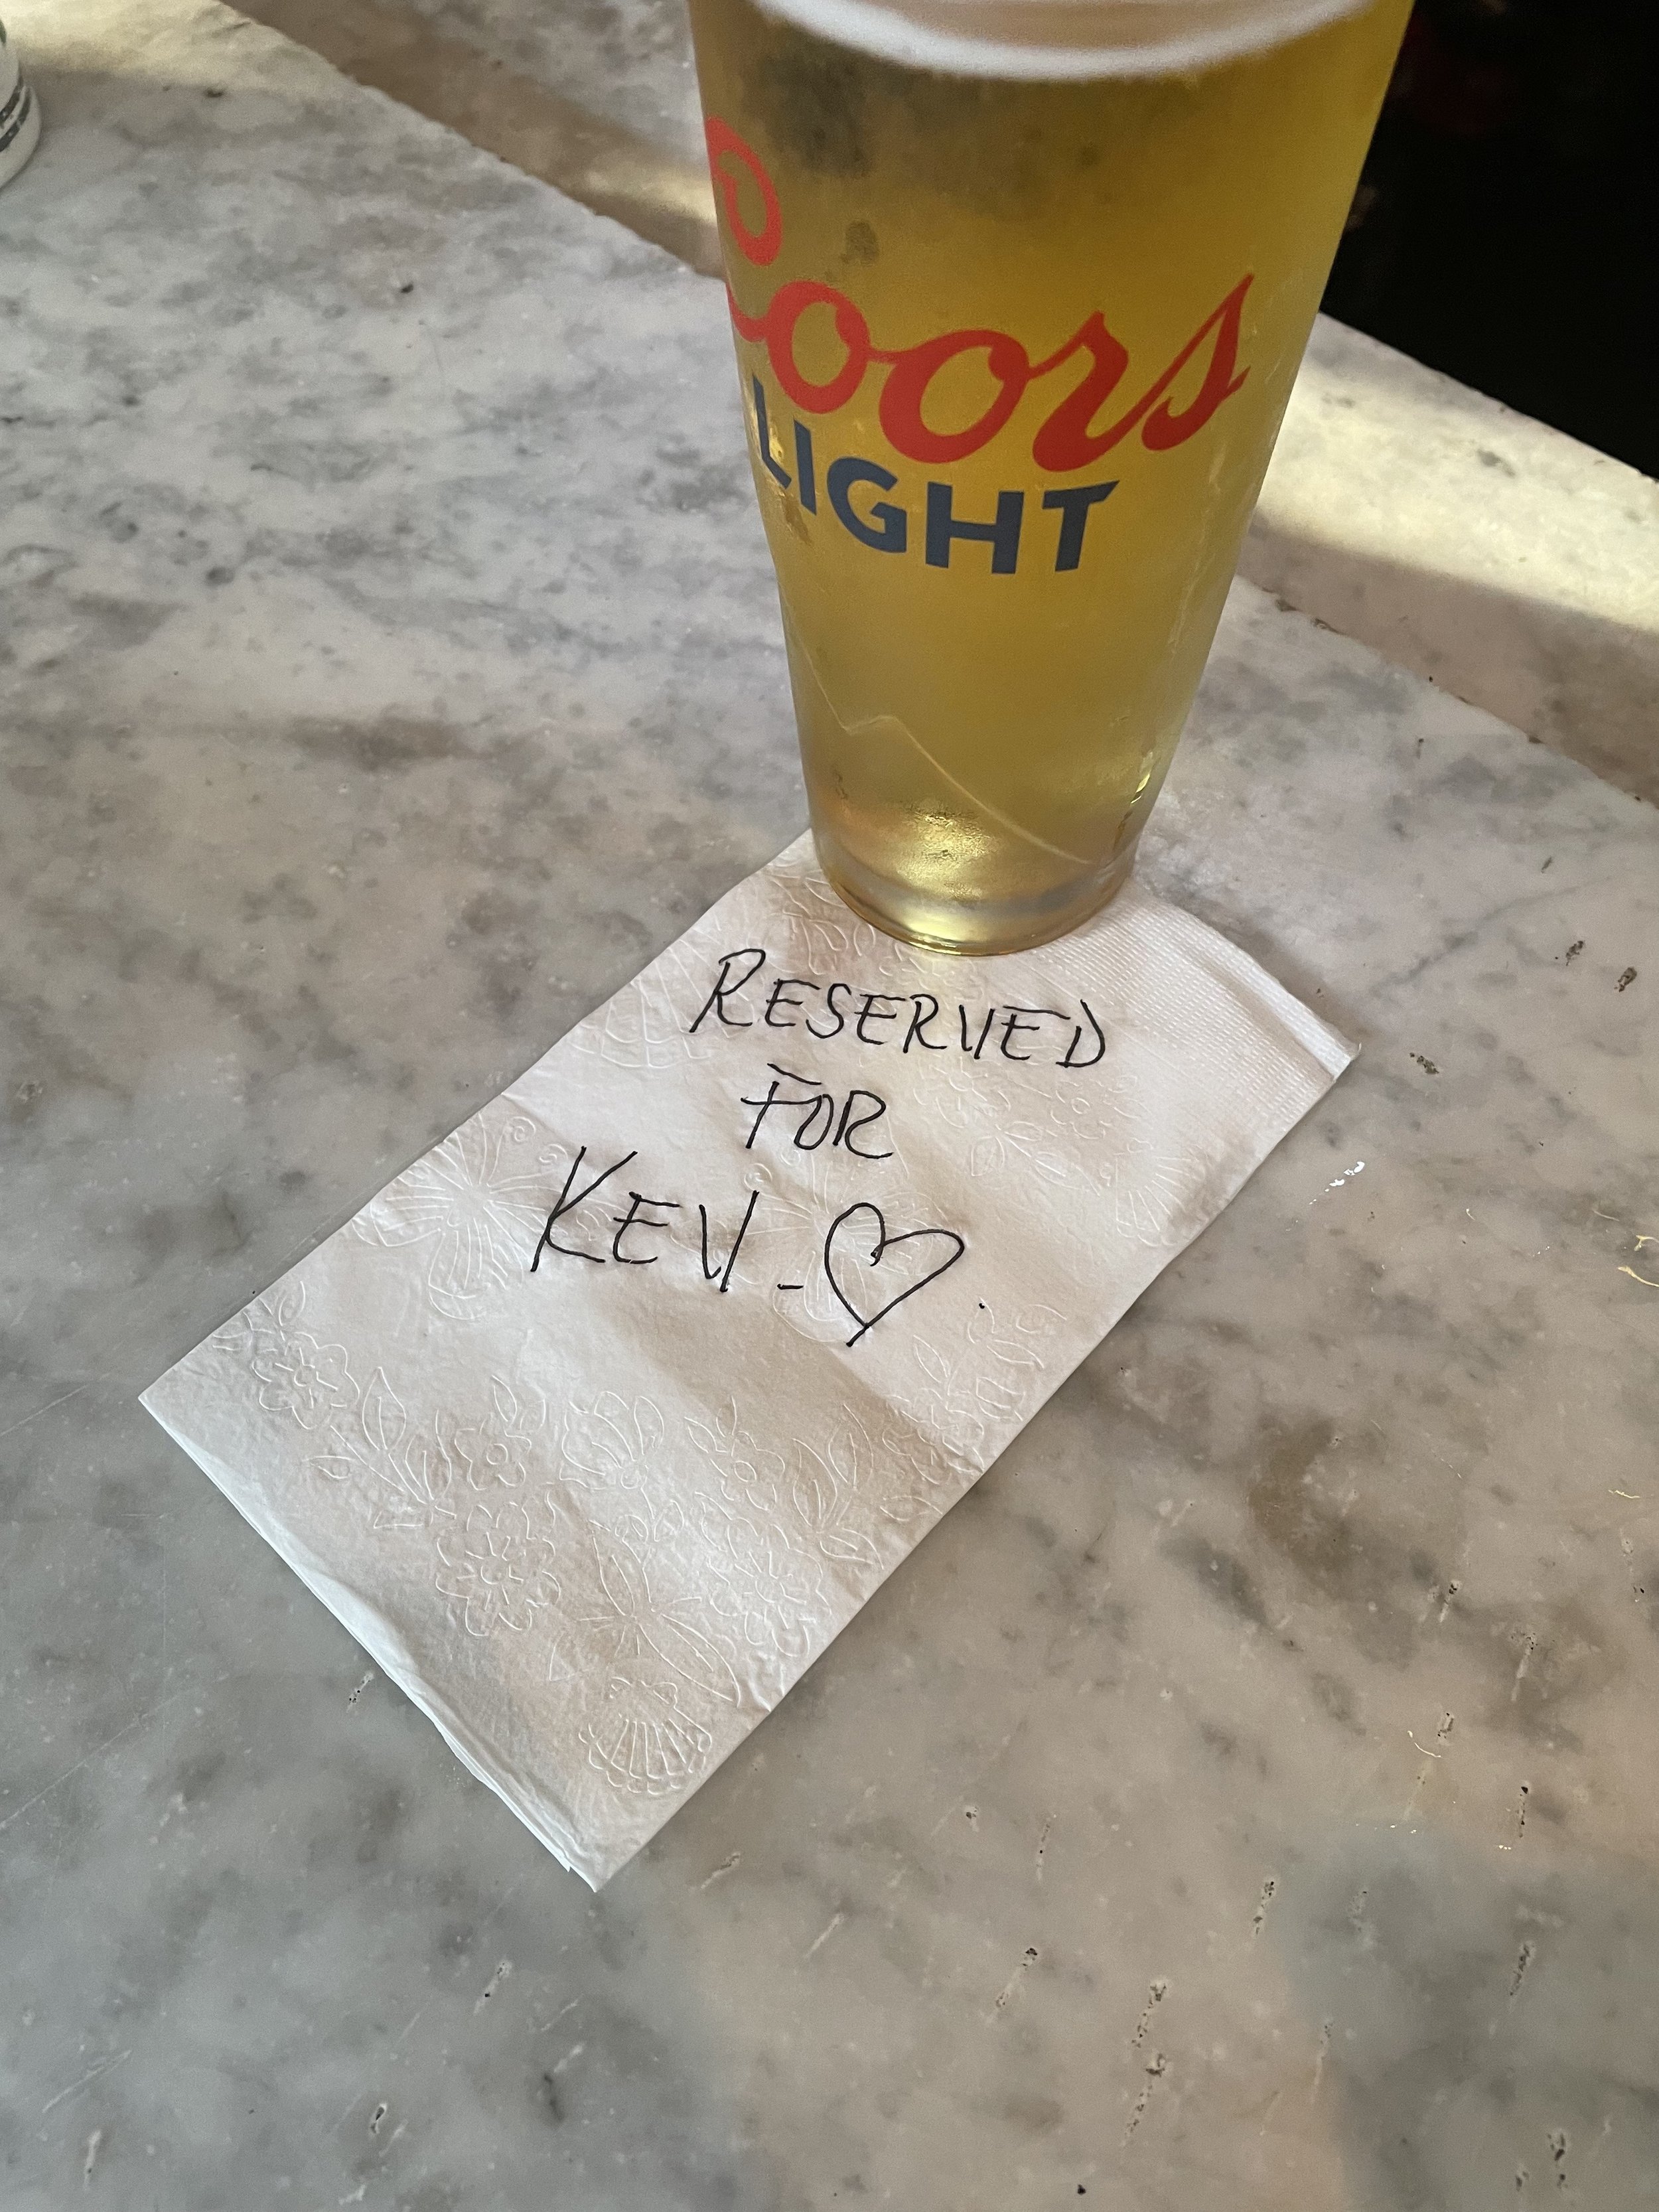 Coors
LIGHT
RESERVED
FOR
KEV-♡.